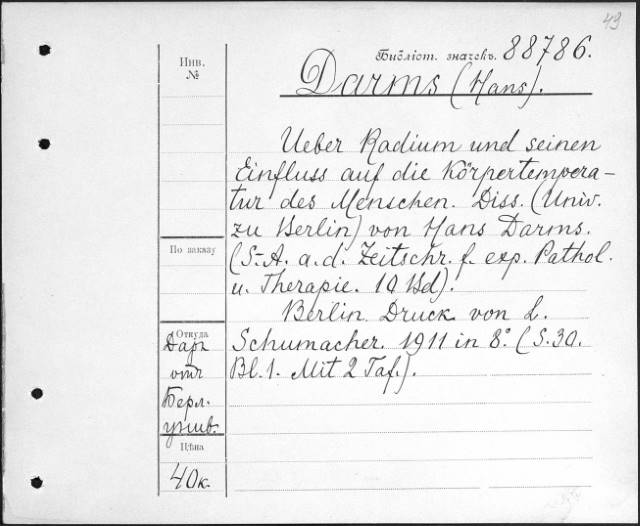 49
Библіот. значекъ. 88786.
Инв.
№
Darms (Hans).
Ueber Radium und seinen
Einfluss auf die Körpertempera-
tur des Menschen. Diss. (Univ.
zu Berlin) von Hans Darms.
По заказу
(S.-A. a. d. Zeitschr. f. exp. Pathol.
u. Therapie. 10 Bd).
Berlin. Druck von L.
Откуда
Schumacher. 1911 in 8°. (S. 30.
Даръ
отъ
Bl. 1. Mit 2 Taf.).
Берл.
унив.
Цѣна
40 к.